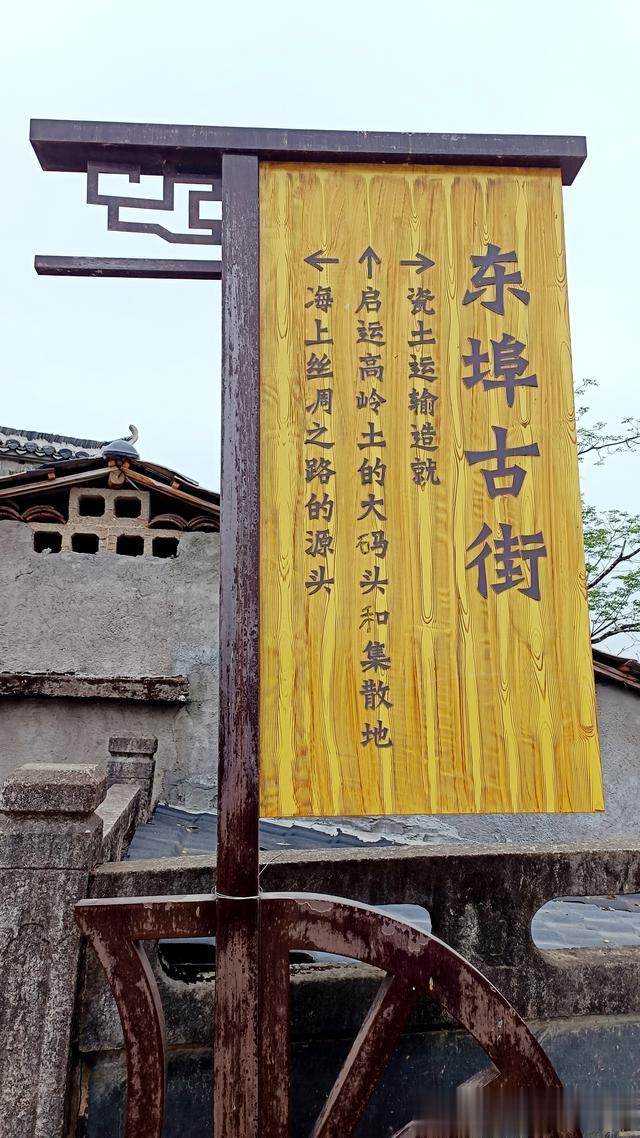 东埠古街
→瓷土运输造就
↑启运高岭土的大码头和集散地
←海上丝凋之路的源头